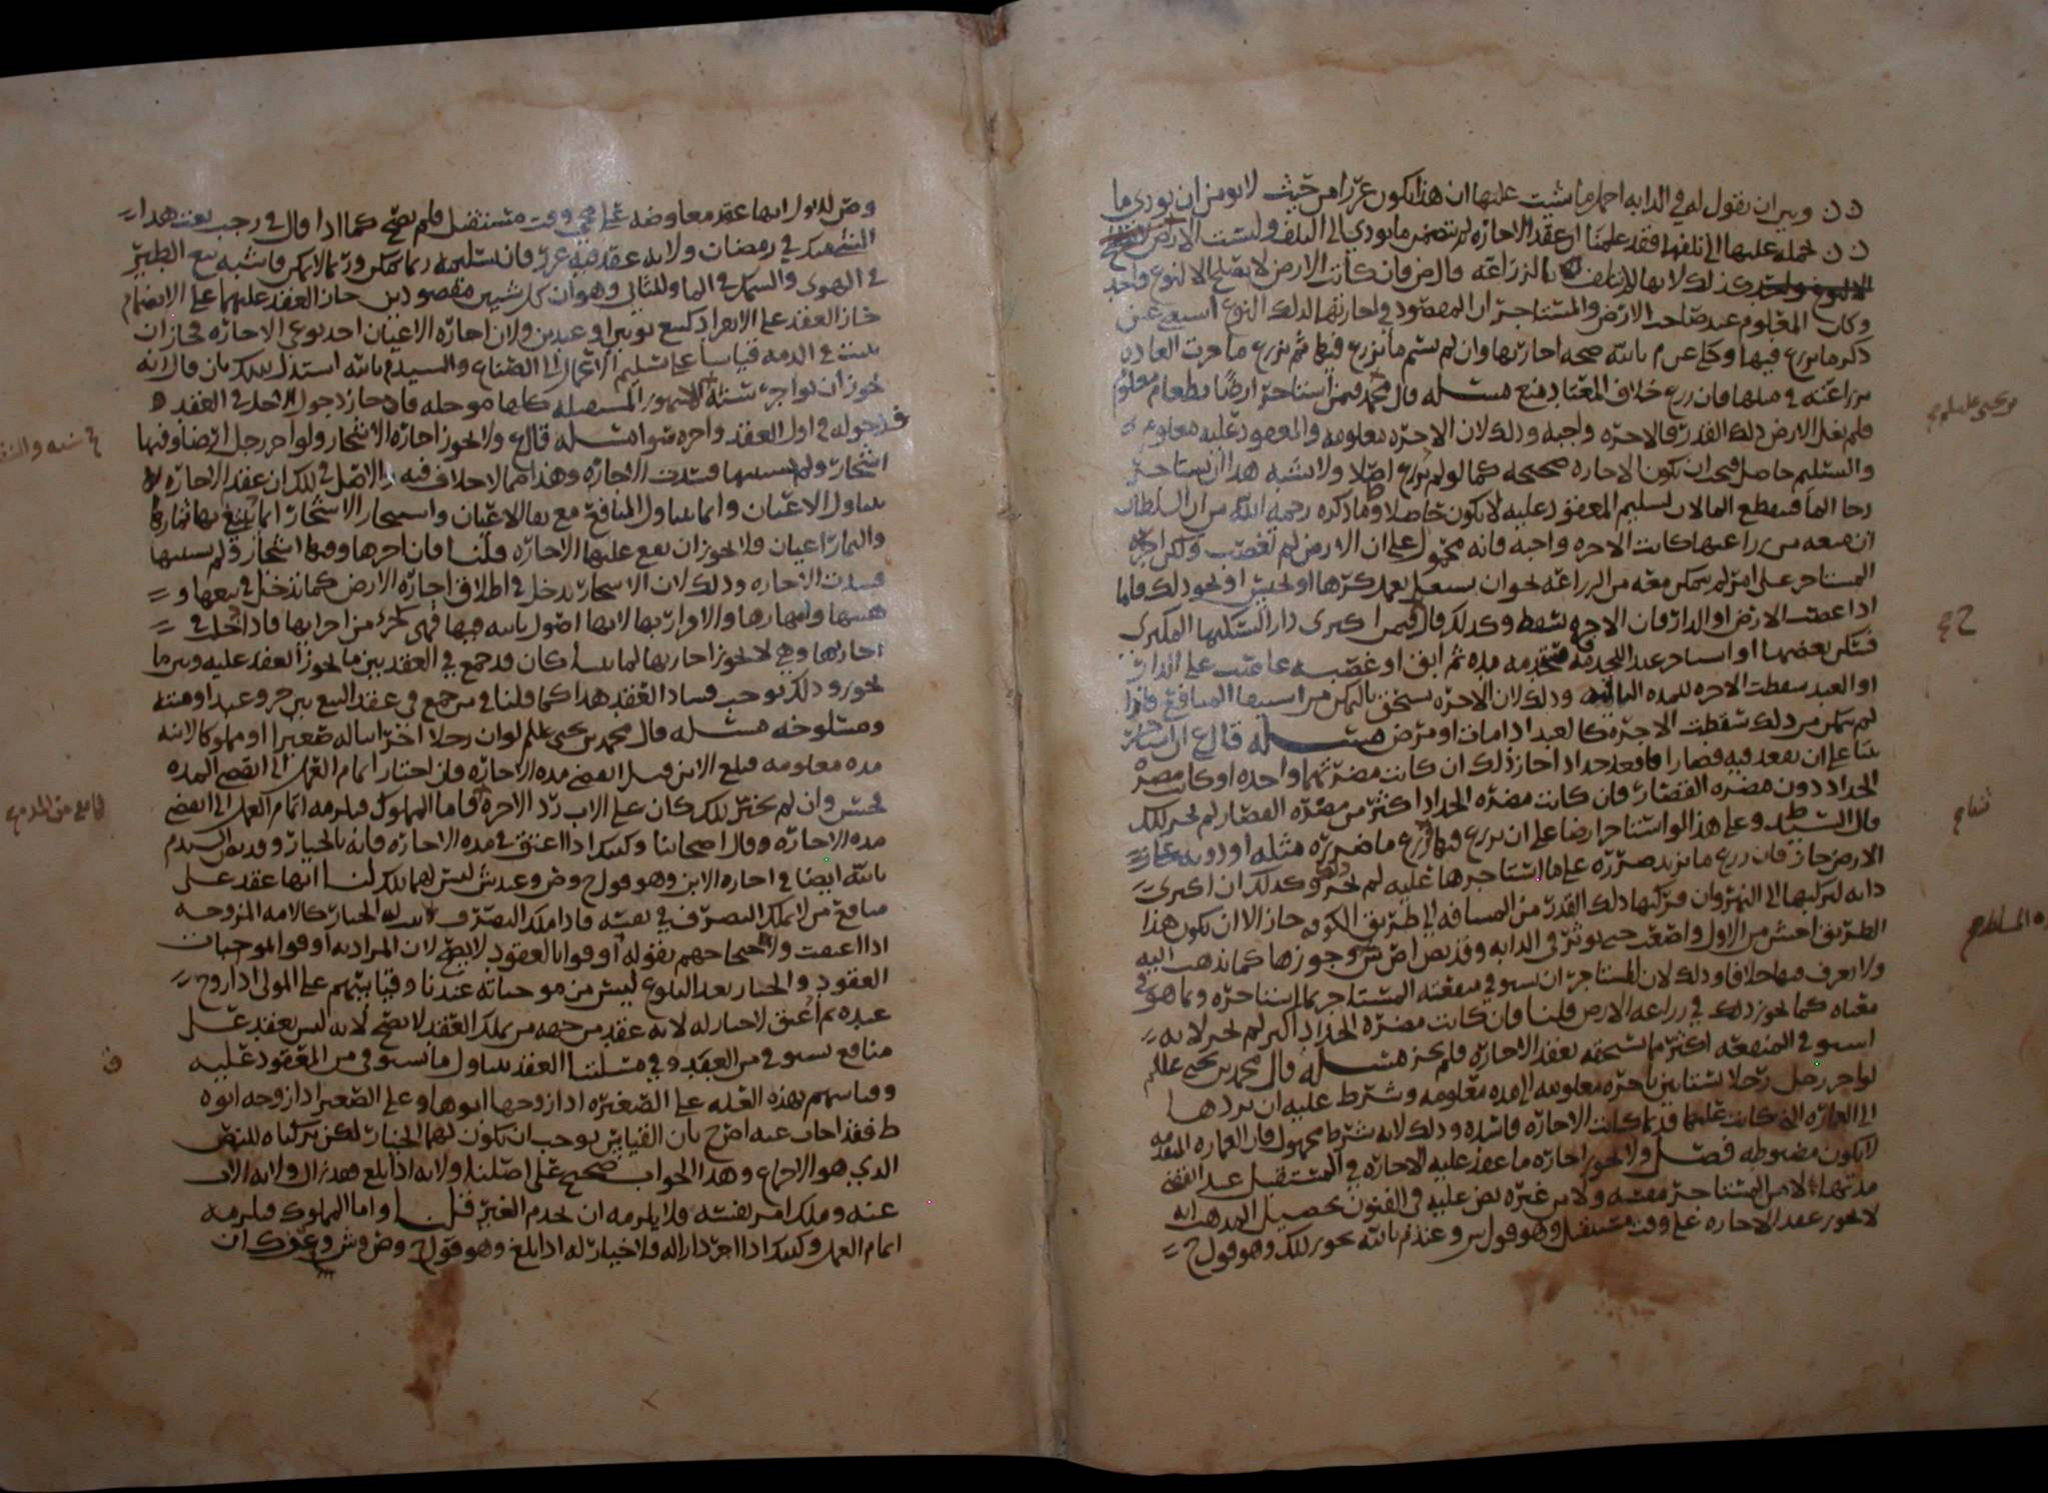 وبين ان يقول له في الدابه احمل ما شيت عليها ان هذا يكون غررا من حيث لا يومن ان يودي ما
حمله عليها الى تلفها فقد علمنا ان عقد الاجاره لم يتضمن ما يودي الى التلف وليست الارض
كذلك لانها لا تتلف بالزراعه قال ض فان كانت الارض لا تصلح الا لنوع واحد
وكان المعلوم عند صاحب الارض والمستاجر ان المقصود في اجارتها لذلك النوع استغنى عن
ذكر ما يزرع فيها وحكى عن م بالله صحه اجارتها وان لم يسم ما يزرع فيها ثم يزرع ما جرت العاده
بزراعته في مثلها فان زرع خلاف المعتاد منع مسئله قال محمد فيمن استاجر ارضا بطعام معلوم
فلم تغل الارض ذلك القدر فالاجره واجبه وذلك لان الاجره معلومه والمعقود عليه معلوم
والتسليم حاصل فيجب ان تكون الاجاره صحيحه كما لو لم يزرع اصلا ولا يشبه هذا ان يستاجر
رحا الما فينقطع الما لان تسليم المعقود عليه لا يكون حاصلا وما ذكره رحمه الله من ان السلطان
ان منعه من زراعتها كانت الاجره واجبه فانه محمول على ان الارض لم تغصب ولكن اجبر
المستاجر على امر لم يتمكن معه من الزراعه نحو ان يستعمل بعمل كرها او يحبس او نحو ذلك فاما
اذا غصبت الارض او الدار فان الاجره تسقط وكذلك قال فيمن اكترى دارا ليسكنها المكتري
فسكن بعضها او استاجر عبدا ليخدمه فخدمه مده ثم ابق او غصبه غاصب على الدار
او العبد سقطت الاجره للمده الباقيه وذلك لان الاجره تستحق بالتمكن من استيفا المنافع فاذا
لم يتمكن من ذلك سقطت الاجره كالعبد اذا مات او مرض مسئله قال ع ان استاجر
بيتا على ان يقعد فيه قصارا فاقعد حدادا جاز ذلك ان كانت مضرتهما واحده او كانت مضره
الحداد دون مضره القصار فان كانت مضره الحداد اكثر من مضره القصار لم يجز ذلك
قال السيد ط وعلى هذا لو استاجر ارضا على ان يزرع فيها فزرع ما ضرره مثله او دونه جاز
الارض جاز فان زرع ما يزيد ضرره على ما استاجرها عليه لم يجز وكذلك ان اكترى
دابه ليركبها الى النهروان فركبها ذلك القدر من المسافه الى طريق الكوفه جاز الا ان يكون هذا
الطريق اخشن من الاول واصعب حتى يوثر في الدابه وقد نص اص ش جوزها كما نذهب اليه
ولا يعرف فيها خلافا وذلك لان للمستاجر ان يستوفي منفعته المستاجر بما استاجره وبما هو في
معناه كما يجوز ذلك في زراعه الارض قلنا فان كانت مضره الحداد اكبر لم يجز لانه
استوفى المنفعه اكثر مما يستحقه بعقد الاجاره فلم يجز مسئله قال محمد بن يحيى عللم
لو اجر رجل رجلا بستانين باجره معلومه الى مده معلومه وشرط عليه ان يردها
الى العماره التي كانت عليها قديما كانت الاجاره فاسده وذلك لانه شرط مجهول فان العماره القديمه
لا تكون مضبوطه فصل ولا يجوز اجاره ما عقد عليه الاجاره في المستقبل على
مدتها لا من المستاجر نفسه ولا من غيره نص عليه في الفنون تحصيل المذهب انه
لا يجوز عقد الاجاره على وقت مستقبل وهو قول س وعند م بالله يجوز ذلك وهو قول ح
وص لنا انها عقد معاوضه على وقت مستقبل فلم يصح كما اذا قال في رجب بعت هذا
الشي منك في رمضان ولانه عقد فيه غرر فان تسليمه ربما يمكن وربما لا يمكن فاشبه بيع الطير
في الهوى والسمك في الما وللثاني وهو ان كل شيين مقصودين جاز العقد عليهما على الانضمام
جاز العقد على الانفراد كبيع ثوبين او عبدين ولان اجاره الاعيان احد نوعي الاجاره فجاز ان
يثبت في الذمه قياسا على تسليم الاعمال الى الصناع والسيد م بالله استدل بذلك بان قال لانه
يجوز ان يواجر سنة كلها موجله فاذا جاز دخول الاجل في العقد
فدخوله في اول العقد واخره سوا مسئله قال ع ولا يجوز اجاره الاشجار ولو اجر رجل ارضا وفيها
اشجار ولم يستثنها فسدت الاجاره وهذا مما لا خلاف فيه والاصل في ذلك ان عقد الاجاره لا
يتناول الاعيان وانما يتناول المنافع مع بقا الاعيان واستيجار الاشجار انما يقع بها ثمارها
والثمار اعيان فلا يجوز ان يقع عليها الاجاره قلنا فان اجرها وفيها اشجار ولم يستثنها
فسدت الاجاره وذلك لان الاشجار تدخل في اطلاق اجاره الارض كما تدخل في بيعها و
هبتها وامهارها والاقرار بها لانها اصول ثابته فيها فهي كجزء من اجزايها فاذا دخل في
اجارتها وهي لا يجوز اجارتها لما بينا كان قد جمع في العقد بين ما يجوز العقد عليه وبين ما
لا يجوز وذلك يوجب فساد العقد هذا كما قلنا فيمن جمع في عقد البيع بين حر وعبد او ميته
ومسلوخه مسئله قال محمد بن يحيى عللم لو ان رجلا اجر ابنا له صغيرا او مملوكا لابنه
مده معلومه فبلغ الابن قبل انقضى مده الاجاره فان اختار اتمام العمل الى انقضى المده
فحسن وان لم يختر ذلك كان على الاب رد الاجره فاما المملوك فيلزمه اتمام العمل الى انقضى
مده الاجاره وقال اصحابنا وكذلك اذا اعتق في مده الاجاره فانه بالخيار وقد نص السيد م
بالله ايضا في اجاره الابن وهو قول ح وص وعند ش ليس لهما ذلك لنا انها عقد على
منافع من لا يملك التصرف في نفسه فاذا ملك التصرف ثبت له الخيار كالامه المزوجه
اذا اعتقت ولا احتجاجهم بقوله اوفوا بالعقود لا يصح لان المراد به اوفوا بموجبات
العقود والخيار بعد البلوغ ليس من موجباته عندنا وقياسهم على المولى اذا زوج
عبده ثم اعتق لا خيار له لانه عقد من جهه من يملك العقد لا يصح لانه ليس بعقد على
منافع تستوفى من العبد وفي مسئلتنا العقد يتناول ما يستوفى من المعقود عليه
وقياسهم بهذه العله على الصغيره اذا زوجها ابوها وعلى الصغير اذا زوجه ابوه
ط فقد اجاب عنه اص ح بان القياس يوجب ان يكون لهما الخيار لكن تركناه للنص
الذي هو الاجماع وهذا الجواب صحيح على اصلنا ولانه اذا بلغ فقد زال ولايه الاب
عنه وملك امر نفسه فلا يلزمه ان يخدم الغير قلنا واما المملوك فيلزمه
اتمام العمل وكذلك اذا اجر دارا له فلا خيار له اذا بلغ وهو قول ح وص وش وعند ك ان